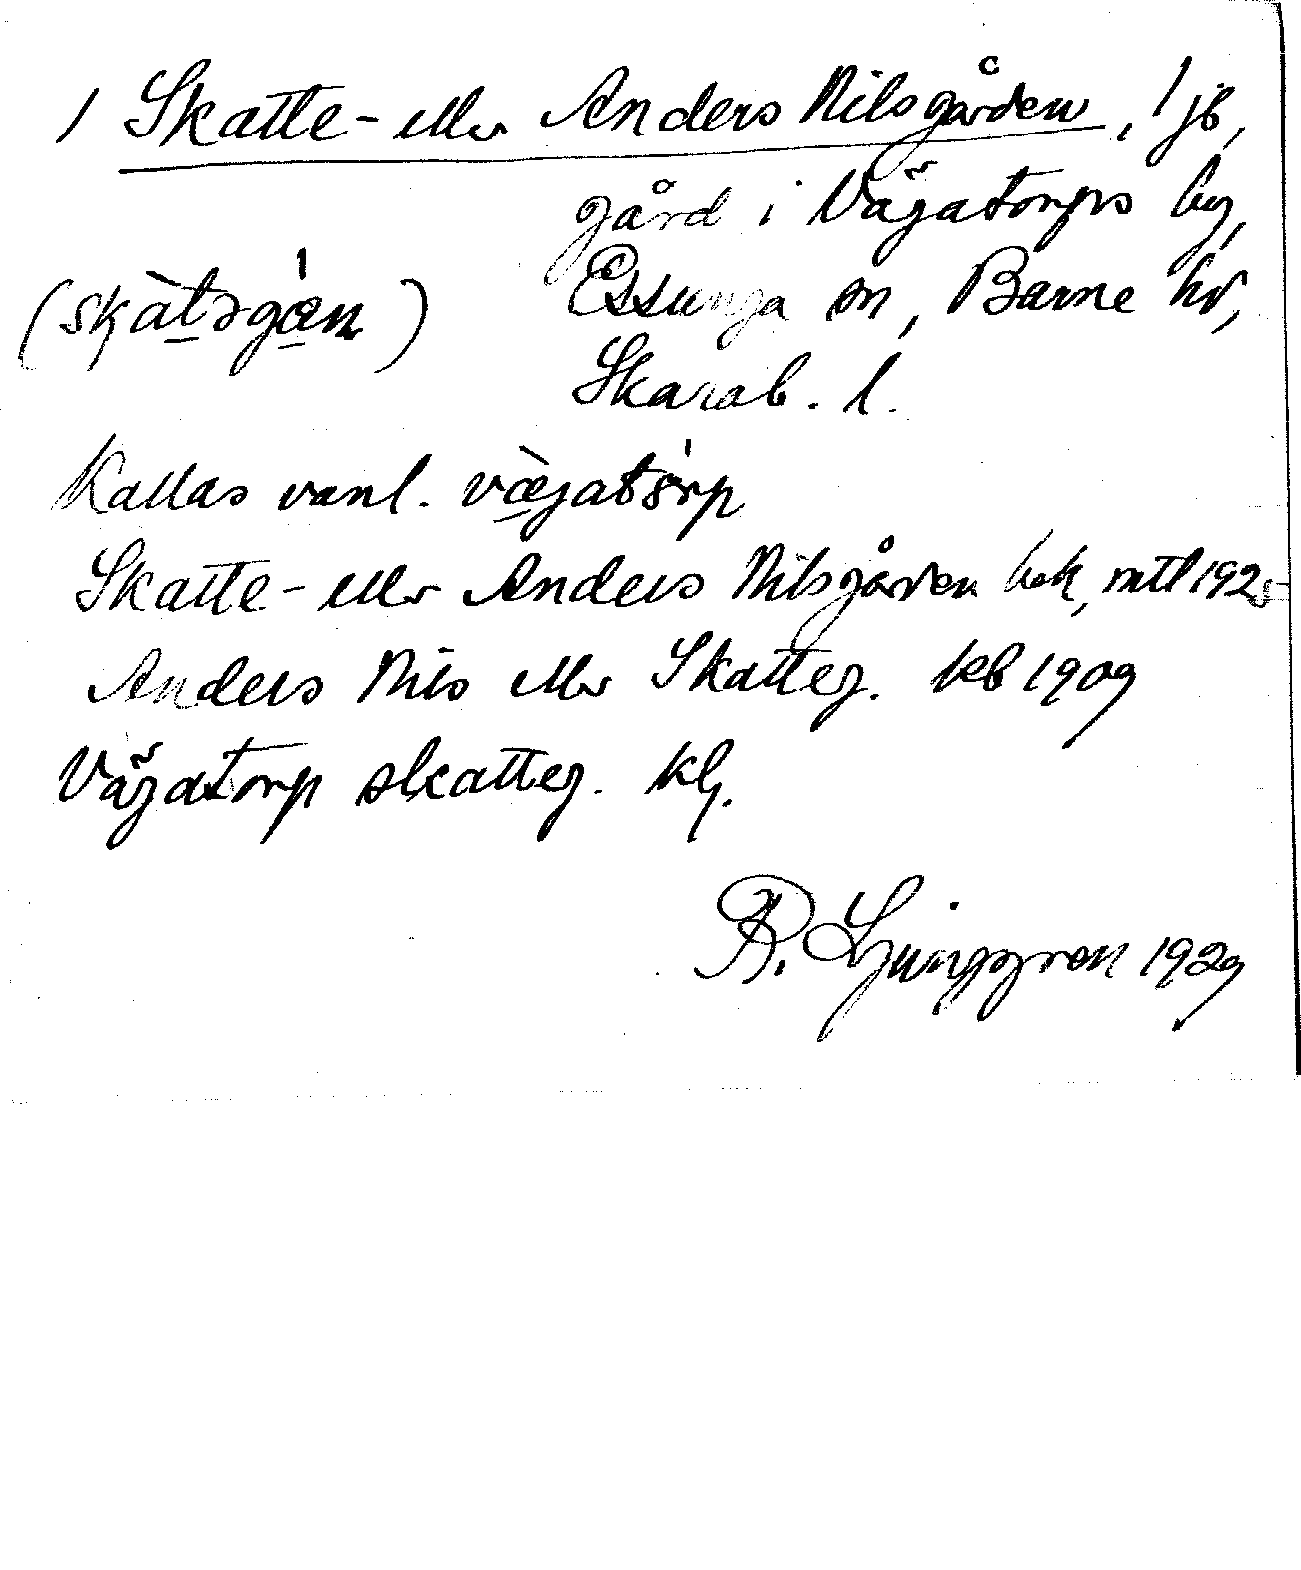 1 Skatte- eller Anders Nilsgården, 1 jb,
gård i Vägatorps by,
(skàtəgǻen) Essunga sn, Barne hd,
Skarab. l.
Kallas vanl. vægatorp
Skatte- eller Anders Nilsgården hek, mtl 1925
Anders Nils eller Skatteg. kb 1909
Vägatorp skatteg. klj.
R. Ljunggren 1929